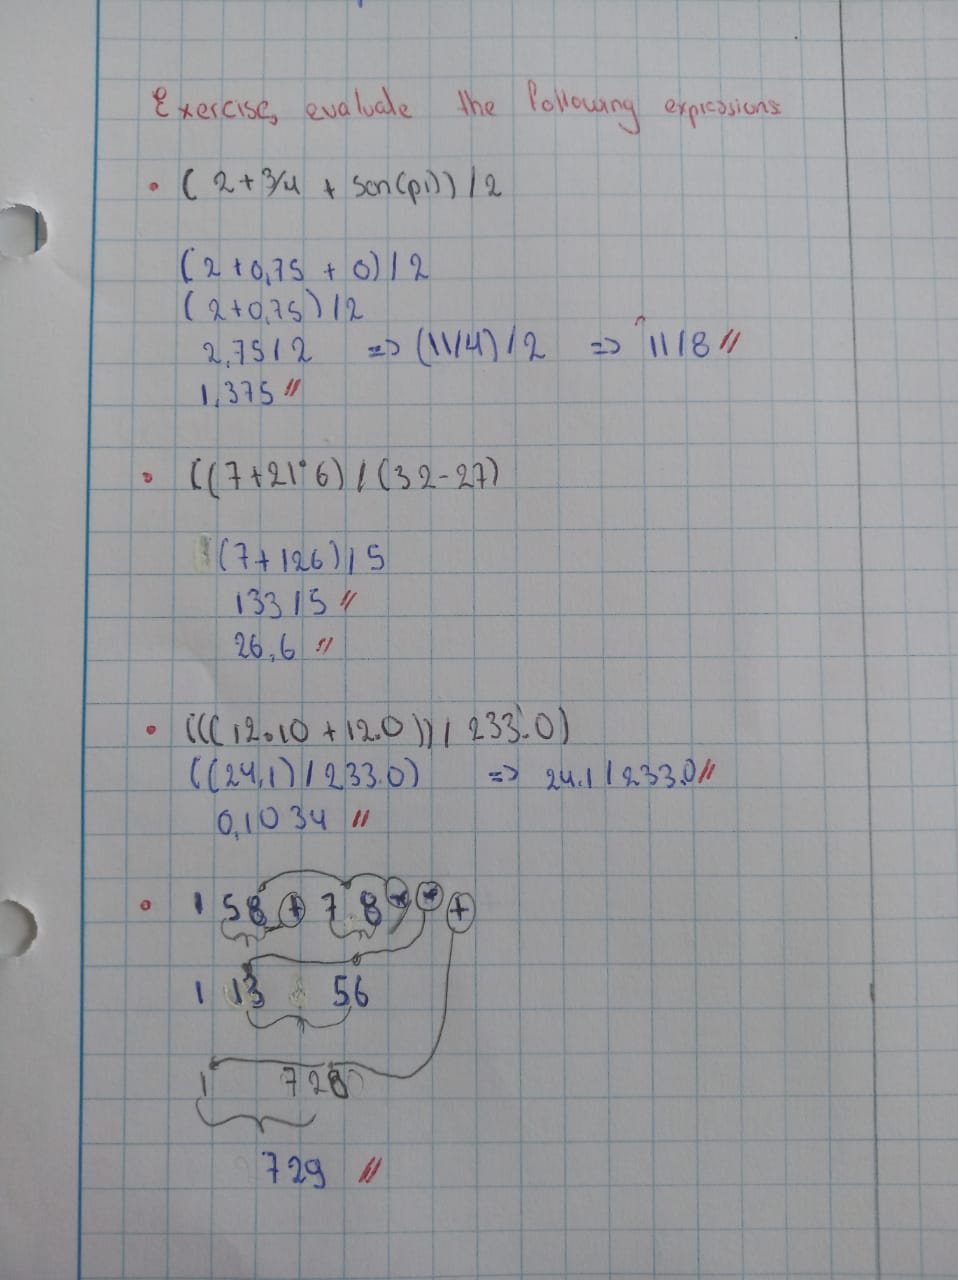 Exercise, evaluate the following expressions
• (2+3/4 + sen(pi))/2
(2+0,75 + 0)/2
(2+0,75)/2
2,75/2 => (11/4)/2 => 11/8 //
1,375 //
• ((7+21*6)/(32-27)
(7+126)/5
133/5 //
26,6 //
• (((12.10 + 12.0))/233.0)
((24,1)/233.0) => 24.1/233.0 //
0,1034 //
• 1 5 8 + 7 8 * * +
1 13 56
1 728
729 //